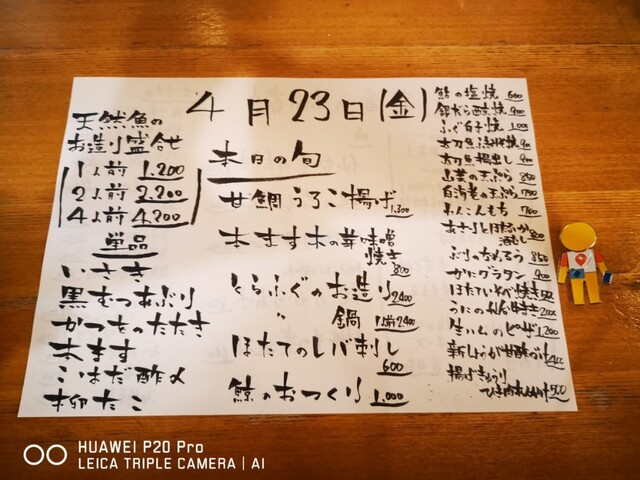 4月23日(金)
天然魚の
お造り盛合せ
1人前 1.200
2人前 2.200
4人前 4.200
単品
いさき
黒むつあぶり
かつをのたたき
本ます
こはだ酢〆
柳たこ
本日の旬
甘鯛うろこ揚げ 1,300
本ます木の芽味噌
焼き 800
とらふぐのお造り 2400
〃 鍋 1人前2400
ほたてのレバ刺し
600
鯨のおつくり 1,000
の塩焼 600
銀だら西京焼 900
ふぐ白子焼 1,000
太刀魚
太刀魚 出し 900
の天ぷら 850
白海老の天ぷら
れんこんもち 700
あさりとほたるいか
酒むし 800
ぶりのなめろう 850
かにグラタン 900
ほたていそべ焼き
うにの
生ハムのピザ 1,200
新しょうが甘酢つけ 400
揚げぎょうり
500
HUAWEI P20 Pro
LEICA TRIPLE CAMERA | AI